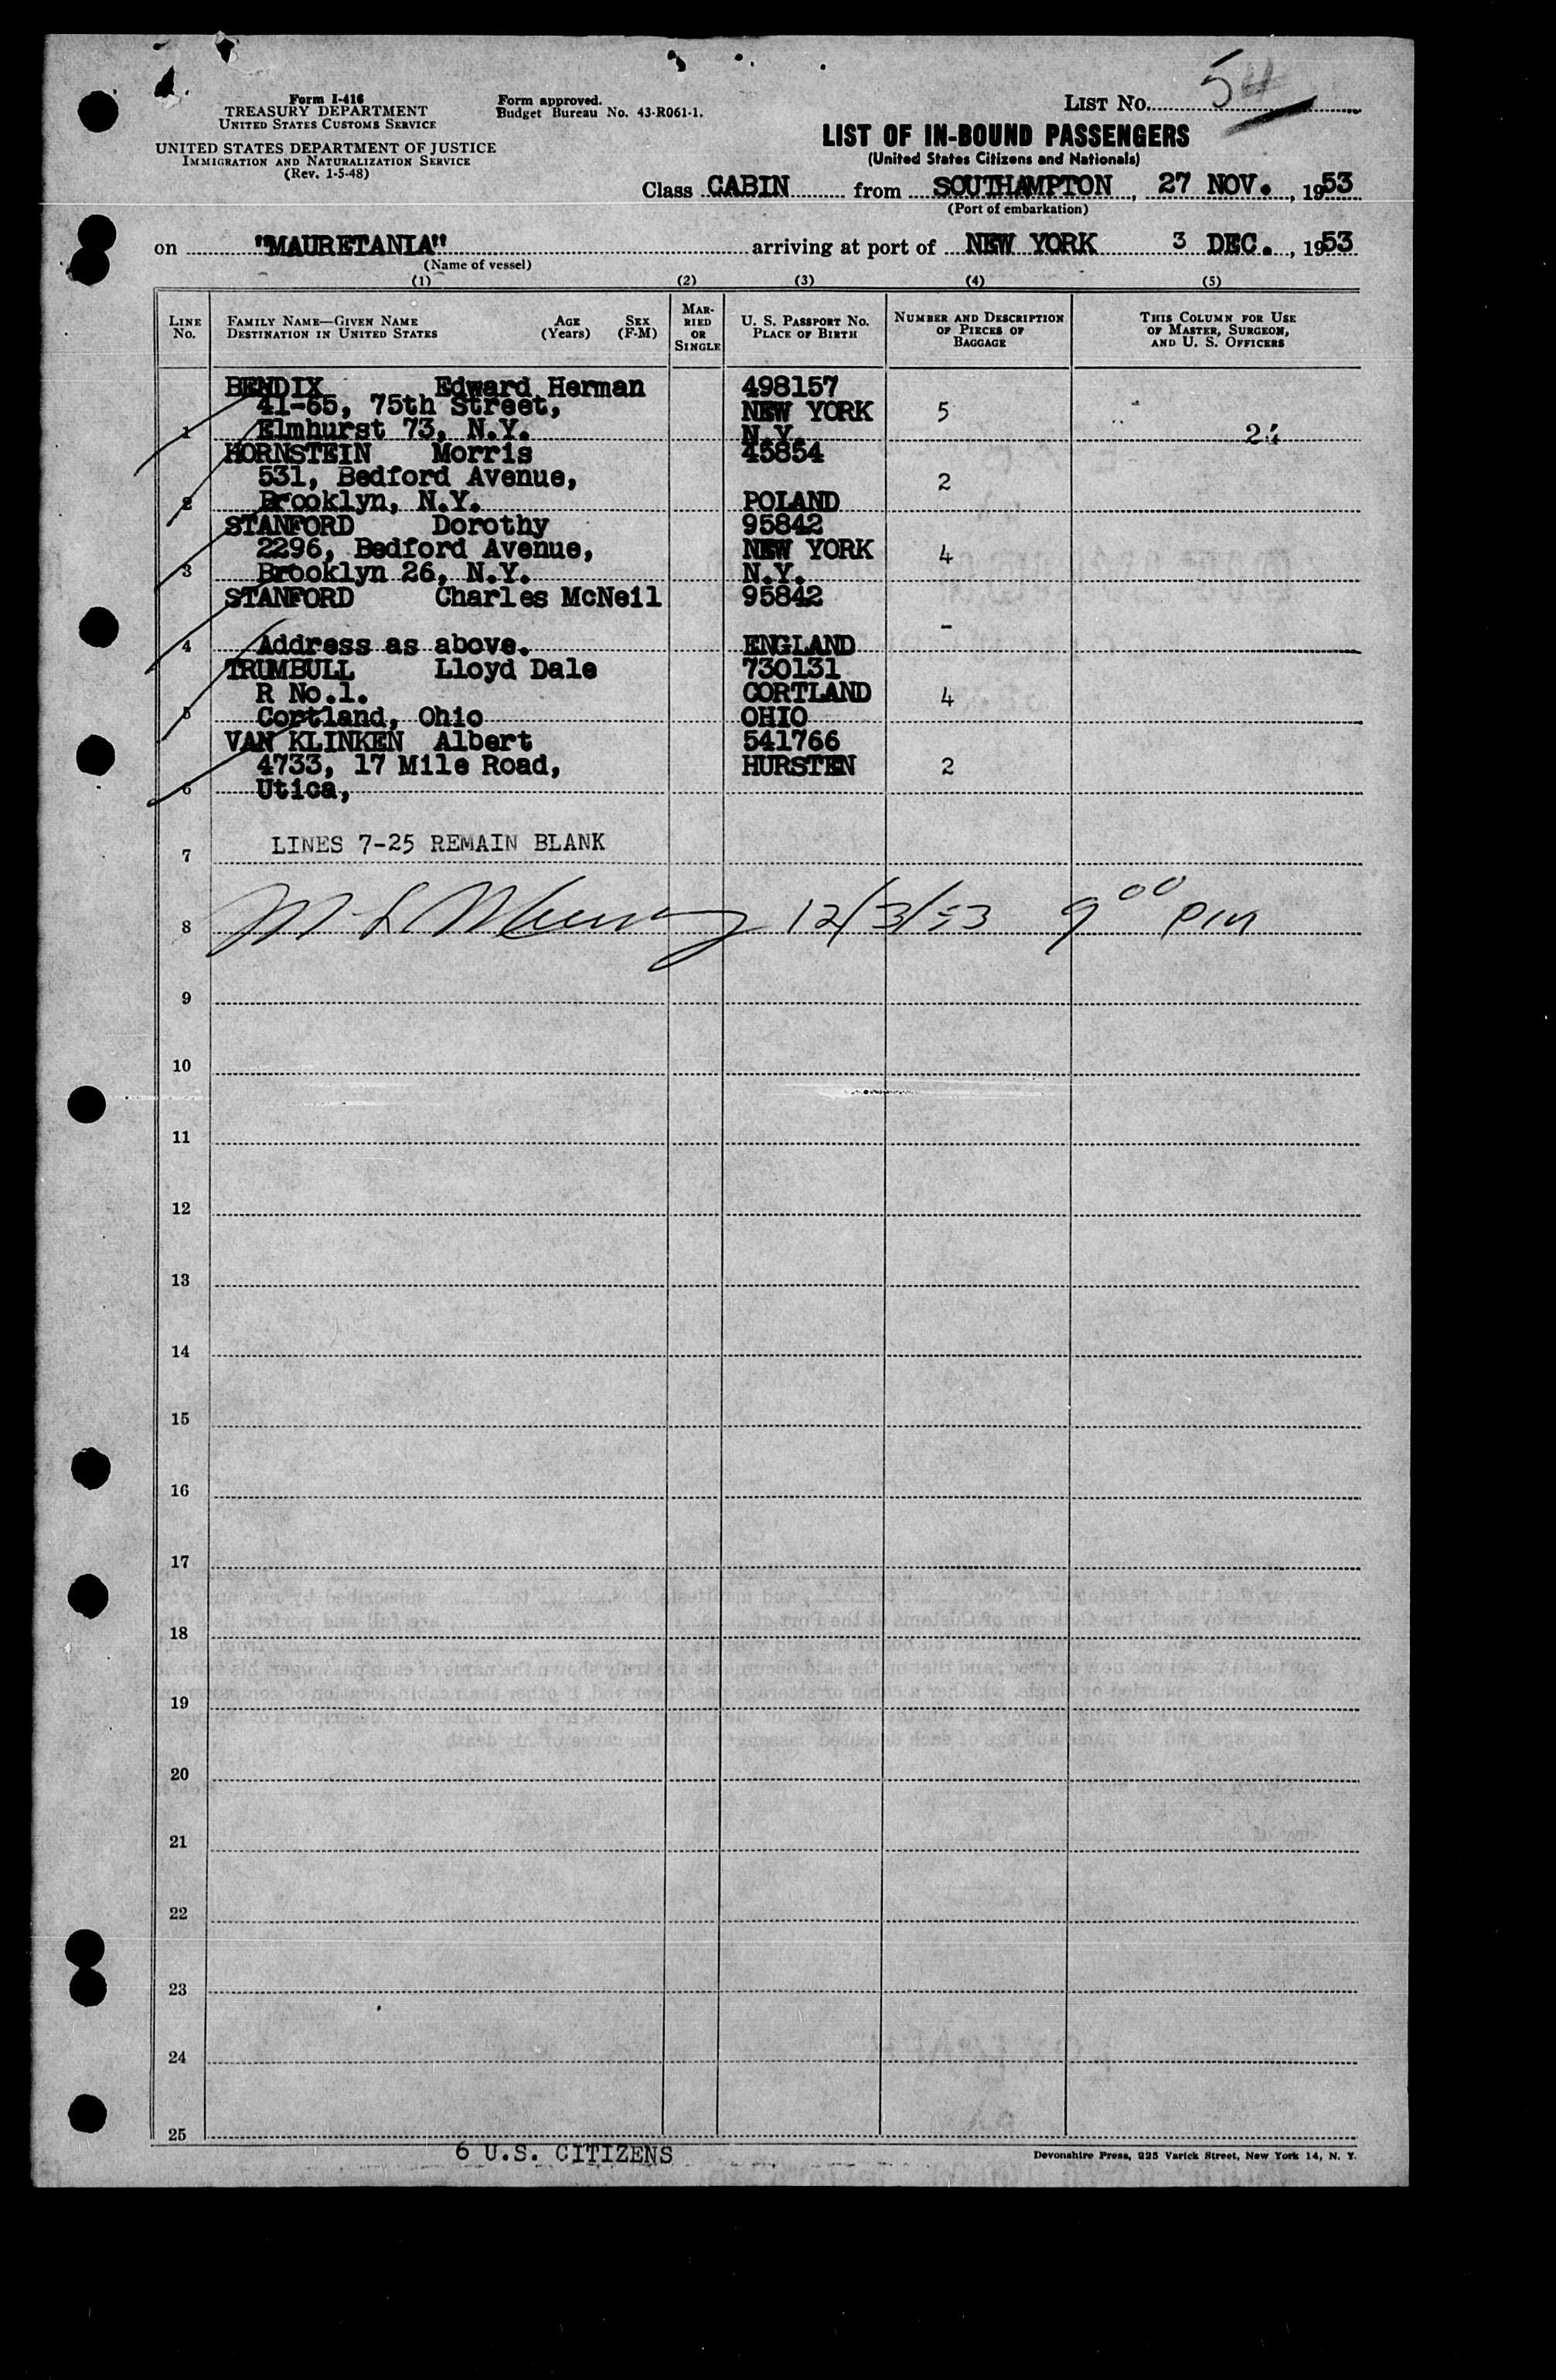 Form I-416
TREASURY DEPARTMENT
UNITED STATES CUSTOMS SERVICE
UNITED STATES DEPARTMENT OF JUSTICE
IMMIGRATION AND NATURALIZATION SERVICE
(Rev. 1-5-48)
Form approved.
Budget Bureau No. 43-R061-1.
LIST No. 54
LIST OF IN-BOUND PASSENGERS
(United States Citizens and Nationals)
Class CABIN from SOUTHAMPTON, 27 NOV., 1953
(Port of embarkation)
on "MAURETANIA" arriving at port of NEW YORK 3 DEC., 1953
(Name of vessel)
(1) (2) (3) (4) (5)
LINE No.
FAMILY NAME—GIVEN NAME AGE SEX
DESTINATION IN UNITED STATES (Years) (F-M)
MARRIED OR SINGLE
U. S. PASSPORT NO.
PLACE OF BIRTH
NUMBER AND DESCRIPTION OF PIECES OF BAGGAGE
THIS COLUMN FOR USE OF MASTER, SURGEON, AND U. S. OFFICERS
BENDIX Edward Herman 498157
41-65, 75th Street, NEW YORK 5
1 Elmhurst 73, N.Y. N.Y.
HORNSTEIN Morris 45854
531, Bedford Avenue, 2
2 Brooklyn, N.Y. POLAND
STANFORD Dorothy 95842
2296, Bedford Avenue, NEW YORK 4
3 Brooklyn 26, N.Y. N.Y.
STANFORD Charles McNeil 95842
-
4 Address as above. ENGLAND
TRUMBULL Lloyd Dale 730131
R No.1. CORTLAND 4
5 Cortland, Ohio OHIO
VAN KLINKEN Albert 541766
4733, 17 Mile Road, HURSTEN 2
6 Utica,
LINES 7-25 REMAIN BLANK
7
8 12/3/53 9 00 pm
9
10
11
12
13
14
15
16
17
18
19
20
21
22
23
24
25
6 U.S. CITIZENS
Devonshire Press, 225 Varick Street, New York 14, N. Y.